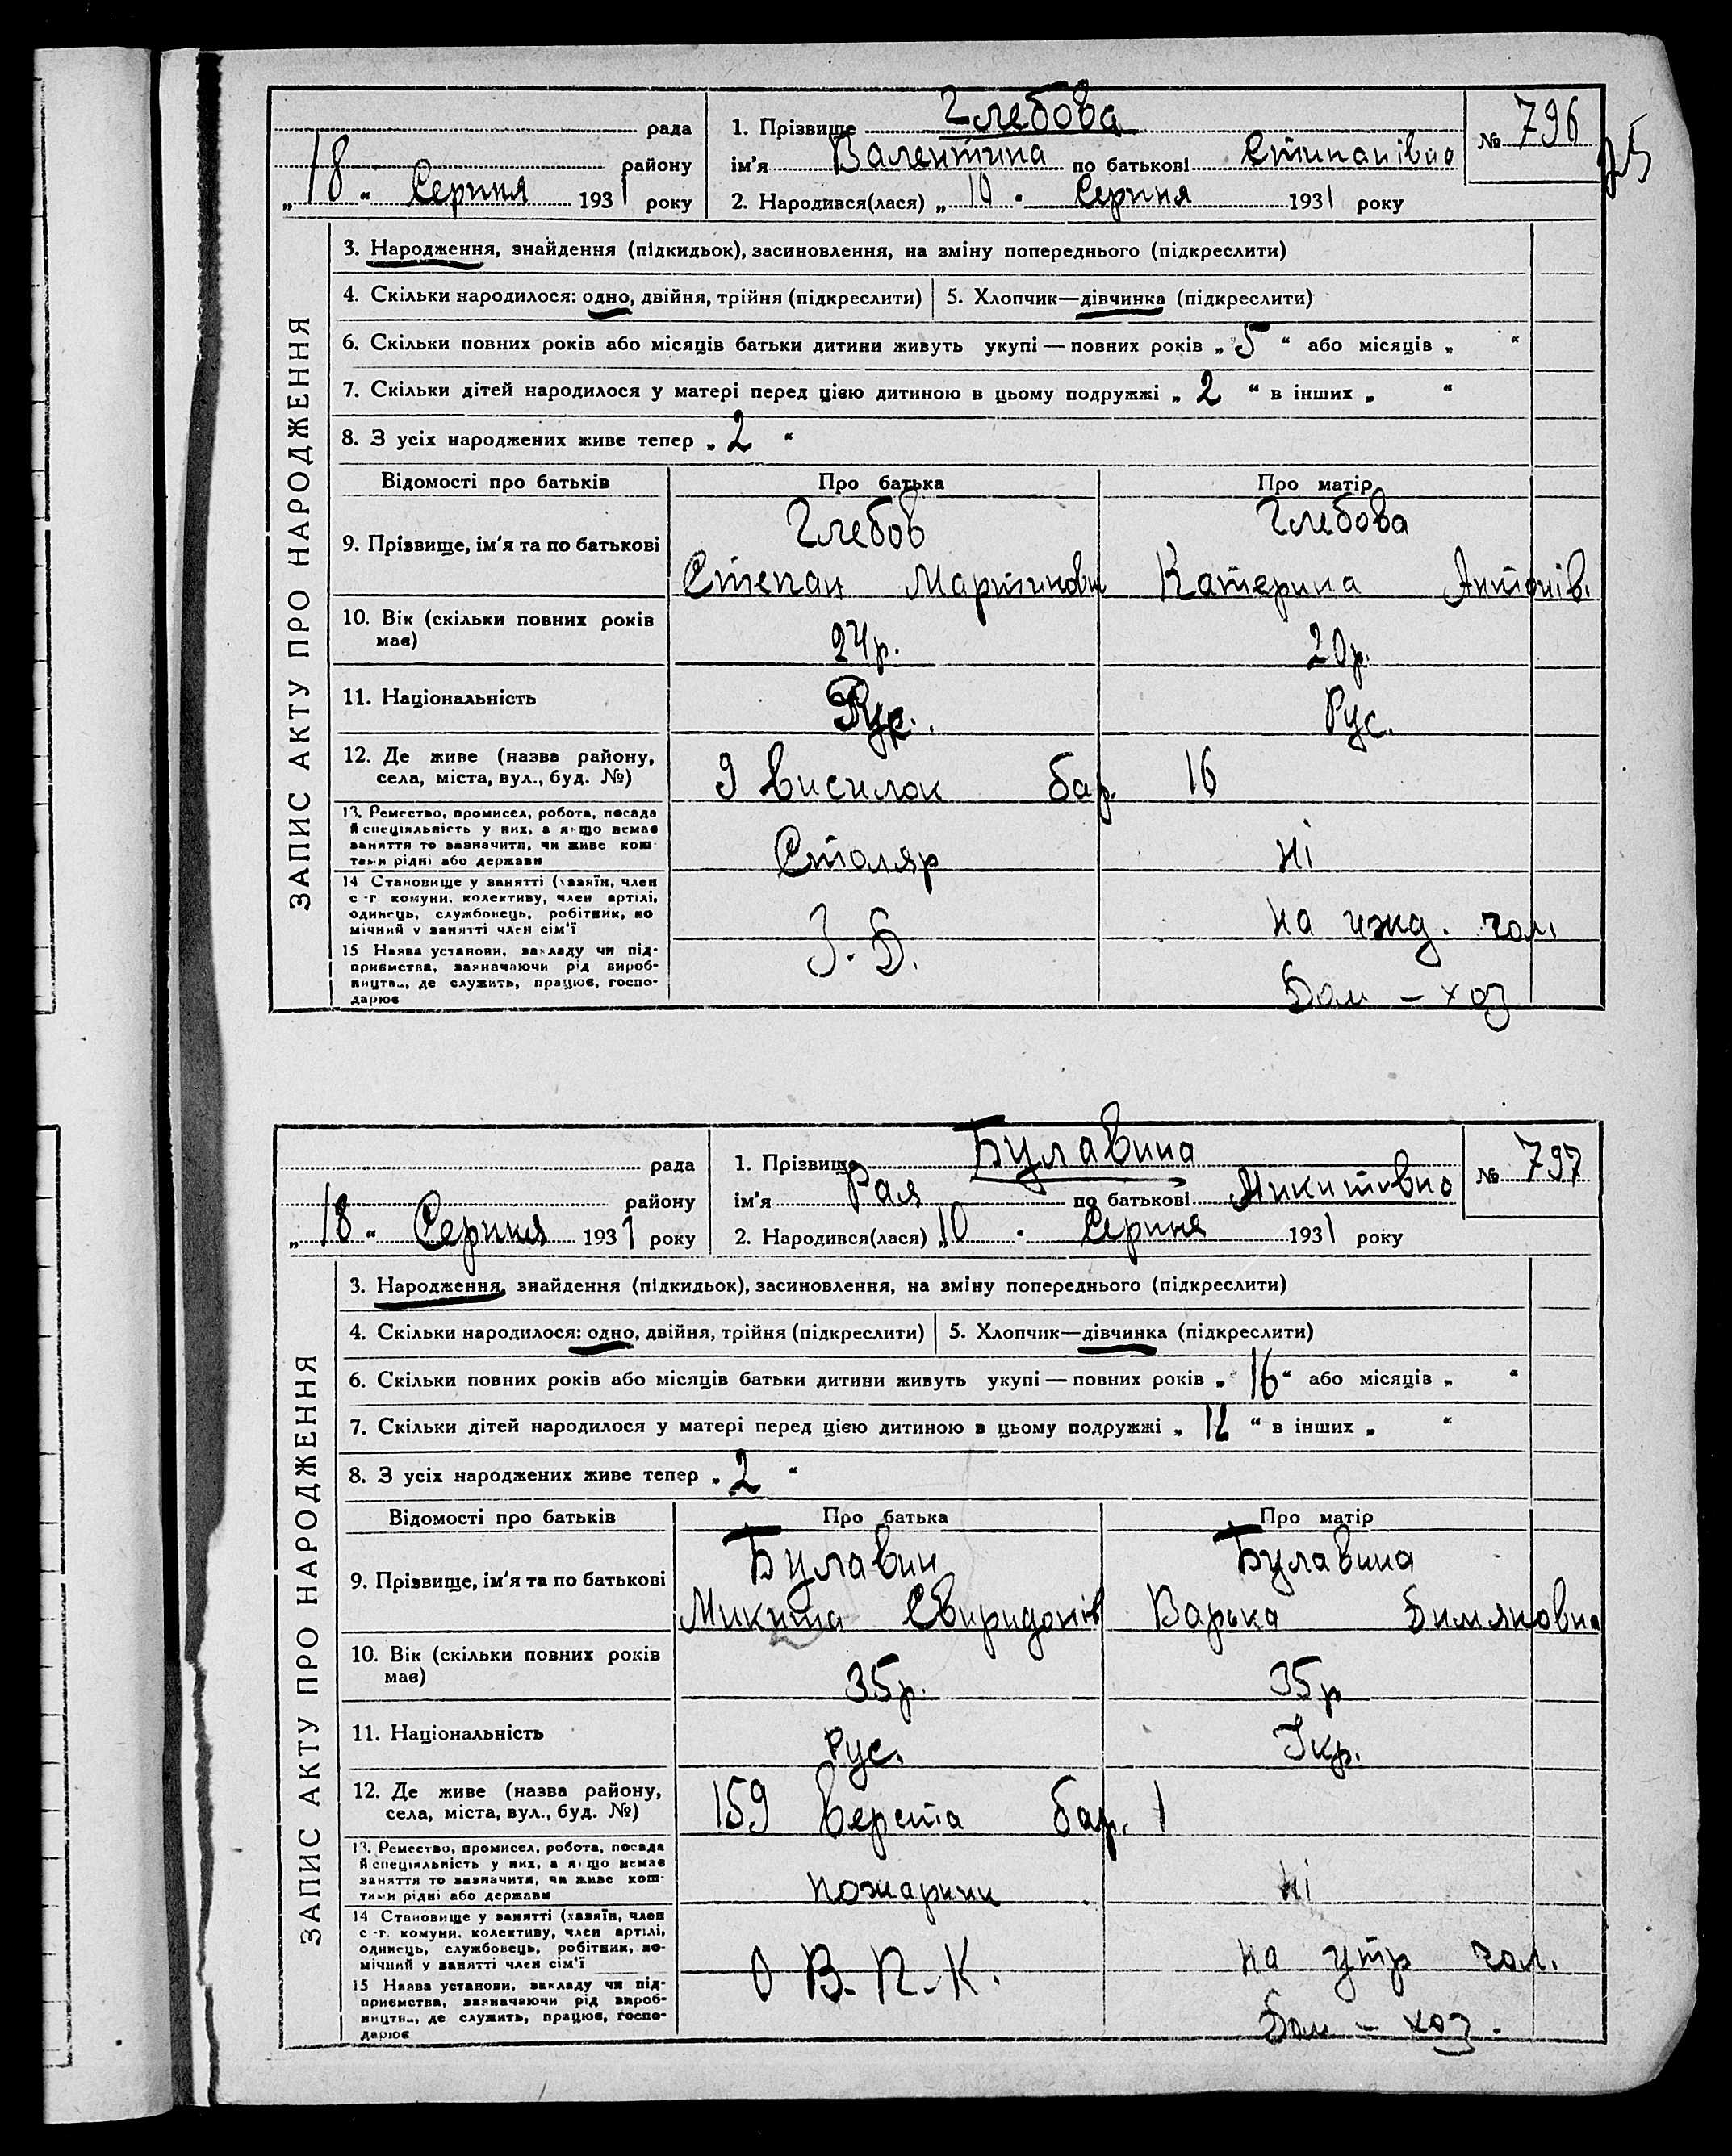 Глебова
рада 1. Прізвище № 796
району ім'я Валентина по батькові Степанівна 25
„18“ Серпня 1931 року 2. Народився(лася) „10“ Серпня 1931 року
ЗАПИС АКТУ ПРО НАРОДЖЕННЯ
3. Народження, знайдення (підкидьок), засиновлення, на зміну попереднього (підкреслити)
4. Скільки народилося: одно, двійня, трійня (підкреслити) 5. Хлопчик—дівчинка (підкреслити)
6. Скільки повних років або місяців батьки дитини живуть укупі — повних років „5“ або місяців „ “
7. Скільки дітей народилося у матері перед цією дитиною в цьому подружжі „2“ в інших „ “
8. З усіх народжених живе тепер „2“
Відомості про батьків Про батька Про матір
Глебов Глебова
9. Прізвище, ім'я та по батькові
Степан Мартинови Катерина Антонів.
10. Вік (скільки повних років
має) 24р. 20р.
11. Національність Рус. Рус.
12. Де живе (назва району,
села, міста, вул., буд. №) 9 висилок бар. 16
13. Ремество, промисел, робота, посада
й спеціяльність у них, а якщо немає
заняття то зазначити, чи живе кош-
тами рідні або держави Столяр ні
14 Становище у занятті (хазяїн, член
с.-г. комуни, колективу, член артілі,
одинець, службовець, робітник, по-
мічний у занятті член сім'ї на ижд. чол.
15 Назва установи, закладу чи під-
приємства, зазначаючи рід вироб-
ництва, де служить, працює, госпо-
дарює Дом – хоз
Булавина
рада 1. Прізвище № 797
району ім'я Рая по батькові Микитовна
„18“ Серпня 1931 року 2. Народився(лася) „10“ Серпня 1931 року
ЗАПИС АКТУ ПРО НАРОДЖЕННЯ
3. Народження, знайдення (підкидьок), засиновлення, на зміну попереднього (підкреслити)
4. Скільки народилося: одно, двійня, трійня (підкреслити) 5. Хлопчик—дівчинка (підкреслити)
6. Скільки повних років або місяців батьки дитини живуть укупі — повних років „16“ або місяців „ “
7. Скільки дітей народилося у матері перед цією дитиною в цьому подружжі „12“ в інших „ “
8. З усіх народжених живе тепер „2“
Відомості про батьків Про батька Про матір
Булавин Булавина
9. Прізвище, ім'я та по батькові
Микита Свиридонів Варька
10. Вік (скільки повних років
має) 35р. 35р
11. Національність Рус. Укр.
12. Де живе (назва району,
села, міста, вул., буд. №) 159 верста бар. 1
13. Ремество, промисел, робота, посада
й спеціяльність у них, а якщо немає
заняття то зазначити, чи живе кош-
тами рідні або держави пожарник ні
14 Становище у занятті (хазяїн, член
с.-г. комуни, колективу, член артілі,
одинець, службовець, робітник, по-
мічний у занятті член сім'ї О В.П.К. на утр чол.
15 Назва установи, закладу чи під-
приємства, зазначаючи рід вироб-
ництва, де служить, працює, госпо-
дарює Дом – хоз.